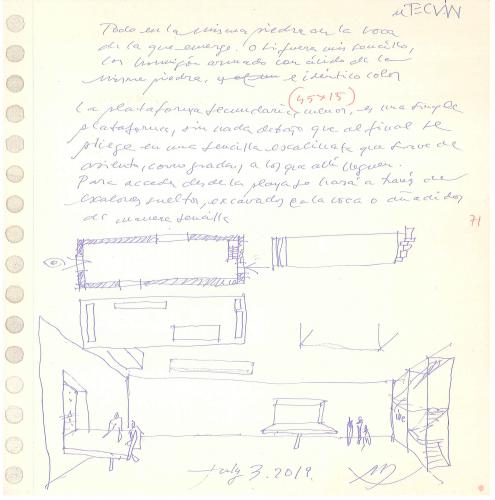 UTECVAN
Todo en la misma piedra en la roca
de la que emerge. O si fuera más sencillo,
con hormigón armado con árido de la
misma piedra, e idéntico color
(45x15)
La plataforma secundaria, menor, es una simple
plataforma, sin nada debajo que al final se
pliega en una sencilla escalinata que sirve de
asiento, como gradas, a los que allí lleguen.
Para acceder desde la playa se hará a través de
escalones sueltos, excavados en la roca o añadidos
de manera sencilla
71
July 3. 2019.